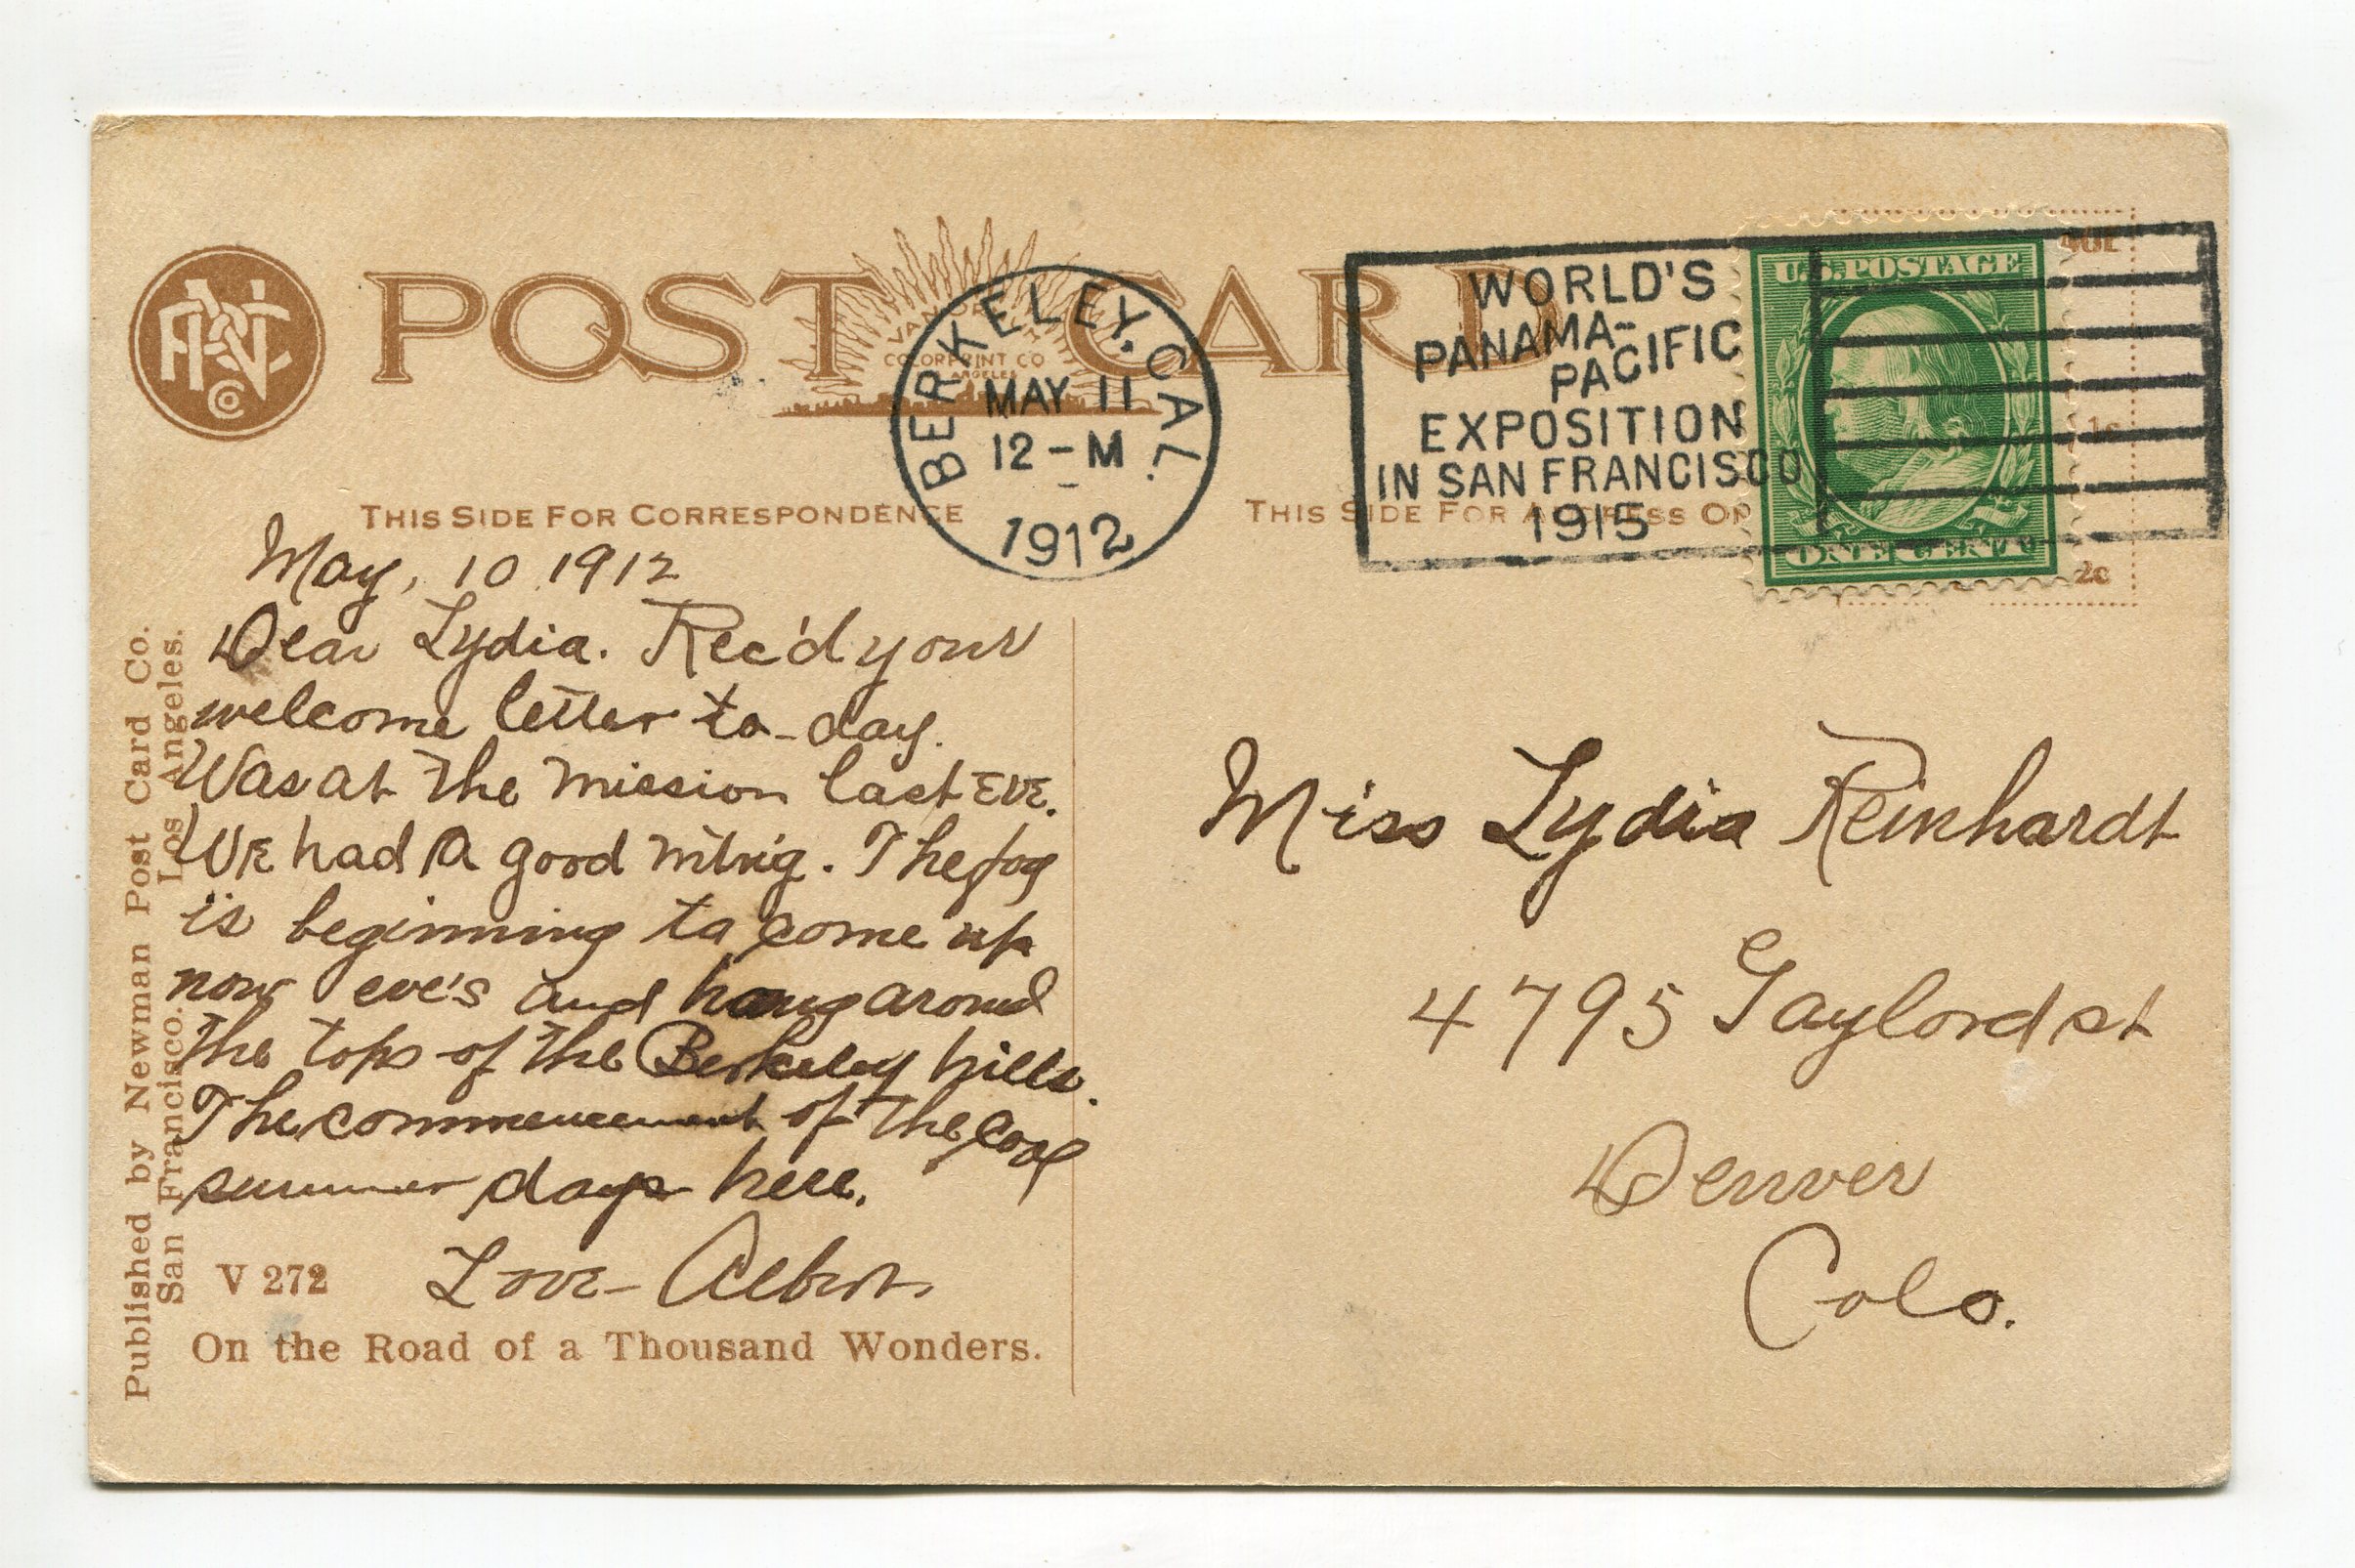 POST CARD
VAN ORNUM
COLORPRINT CO
LOS ANGELES
BERKELEY, CAL.
MAY 11
12-M
1912
WORLD'S
PANAMA-
PACIFIC
EXPOSITION
IN SAN FRANCISCO
1915
U.S. POSTAGE
ONE CENT
1c
2c
THIS SIDE FOR CORRESPONDENCE
THIS SIDE FOR ADDRESS ON
May, 10 1912
Dear Lydia. Rec'd your
welcome letter to-day.
Was at the mission last eve.
We had a good mtng. The fog
is beginning to come up
now eve's and hang around
the tops of the Berkeley hills.
The commencement of the cool
summer days here.
Love- Albert.
V 272
On the Road of a Thousand Wonders.
Published by Newman Post Card Co.
San Francisco. Los Angeles.
Miss Lydia Reinhardt
4795 Gaylord st
Denver
Colo.